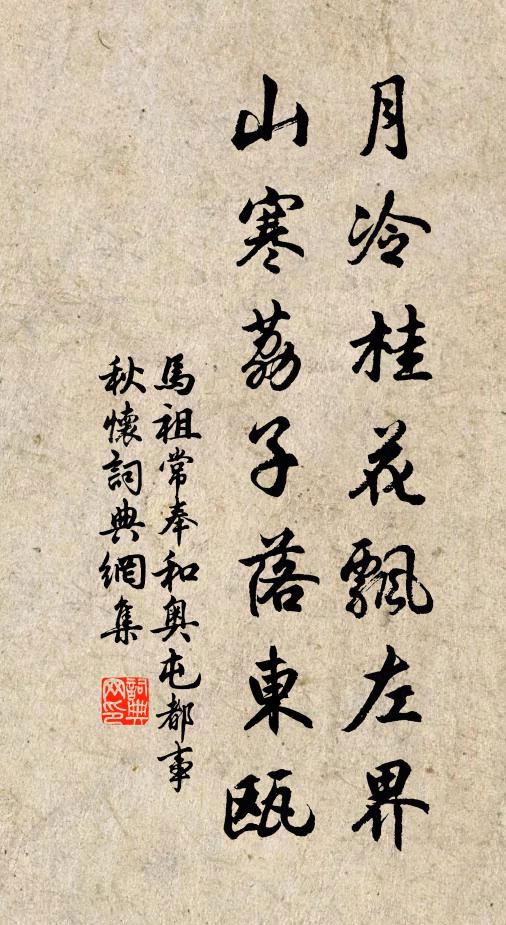 月冷桂花飄左界
山寒荔子落東甌
馬祖常奉和奥屯都事
秋懷詞典網集
詞典網印